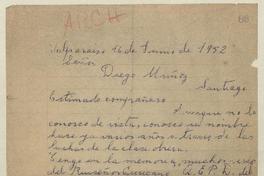 ARCH
88
Valparaiso 16 de Junio de 1952
Señor
Diego Muñoz
Santiago
Estimado compañero
Aunque no le
conosco de vista, conosco su nombre
hase ya varios años a traves de las
luchas de la clase obrera.
Tengo en la memoria, muchos
del